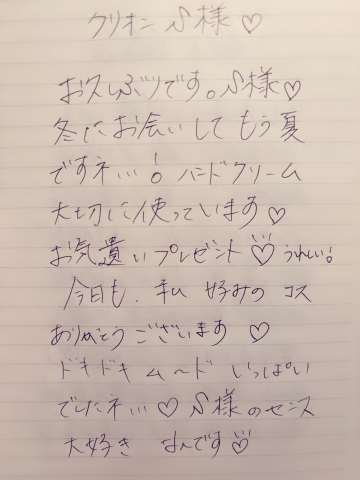 クリオン S様♡
お久しぶりです。S様♡
冬にお会いしてもう夏
ですネ…! ハンドクリーム
大切に使っています♡
お気遣いプレゼント♡うれしい!
今日も、私好みのコス
ありがとうございます♡
ドキドキムードいっぱい
でしたネ…♡S様のセンス
大好きなんです♡